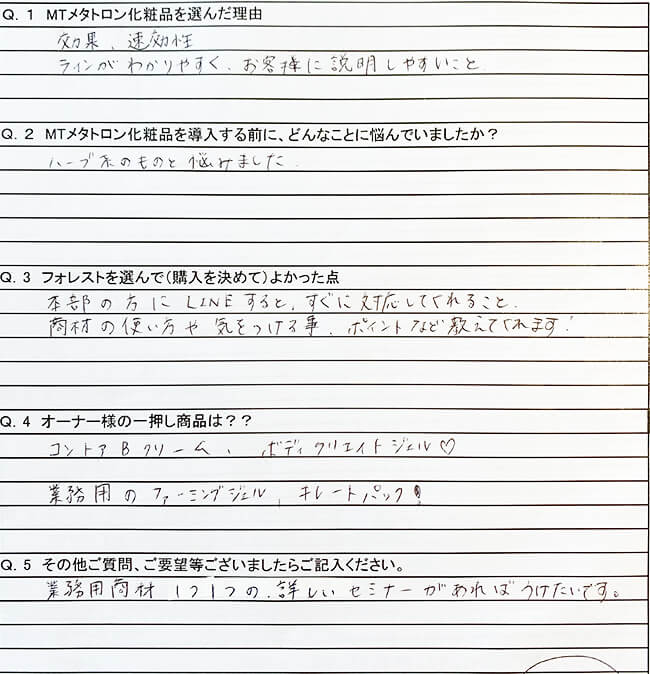 Q. 1 MTメタトロン化粧品を選んだ理由
効果、速効性
ラインがわかりやすく、お客様に説明しやすいこと
Q. 2 MTメタトロン化粧品を導入する前に、どんなことに悩んでいましたか？
ハーブ系のものと悩みました.
Q. 3 フォレストを選んで（購入を決めて）よかった点
本部の方にLINEすると、すぐに対応してくれること.
商材の使い方や気をつける事、ポイントなど教えてくれます!
Q. 4 オーナー様の一押し商品は？？
コントアBクリーム、ボディクリエイトジェル♡
業務用のファーミングジェル、キレートパック!
Q. 5 その他ご質問、ご要望等ございましたらご記入ください。
業務用商材1つ1つの、詳しいセミナーがあればうけたいです。